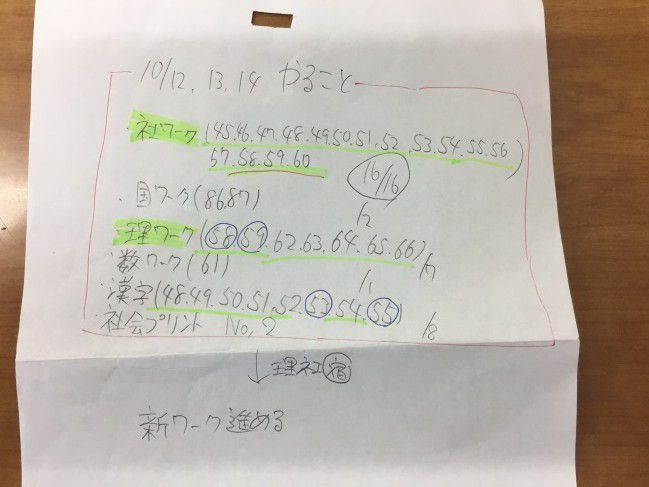 10/12, 13, 14 やること
・社ワーク(45.46.47.48.49.50.51.52.53.54.55.56
57.58.59.60)
16/16
・国ワーク(86.87)
/2
・理ワーク(58.59.62.63.64.65.66)
/7
数ワーク(61)
/1
漢字(48.49.50.51.52.53.54.55)
/8
社会プリント No, 2
↓理社宿
新ワーク進める